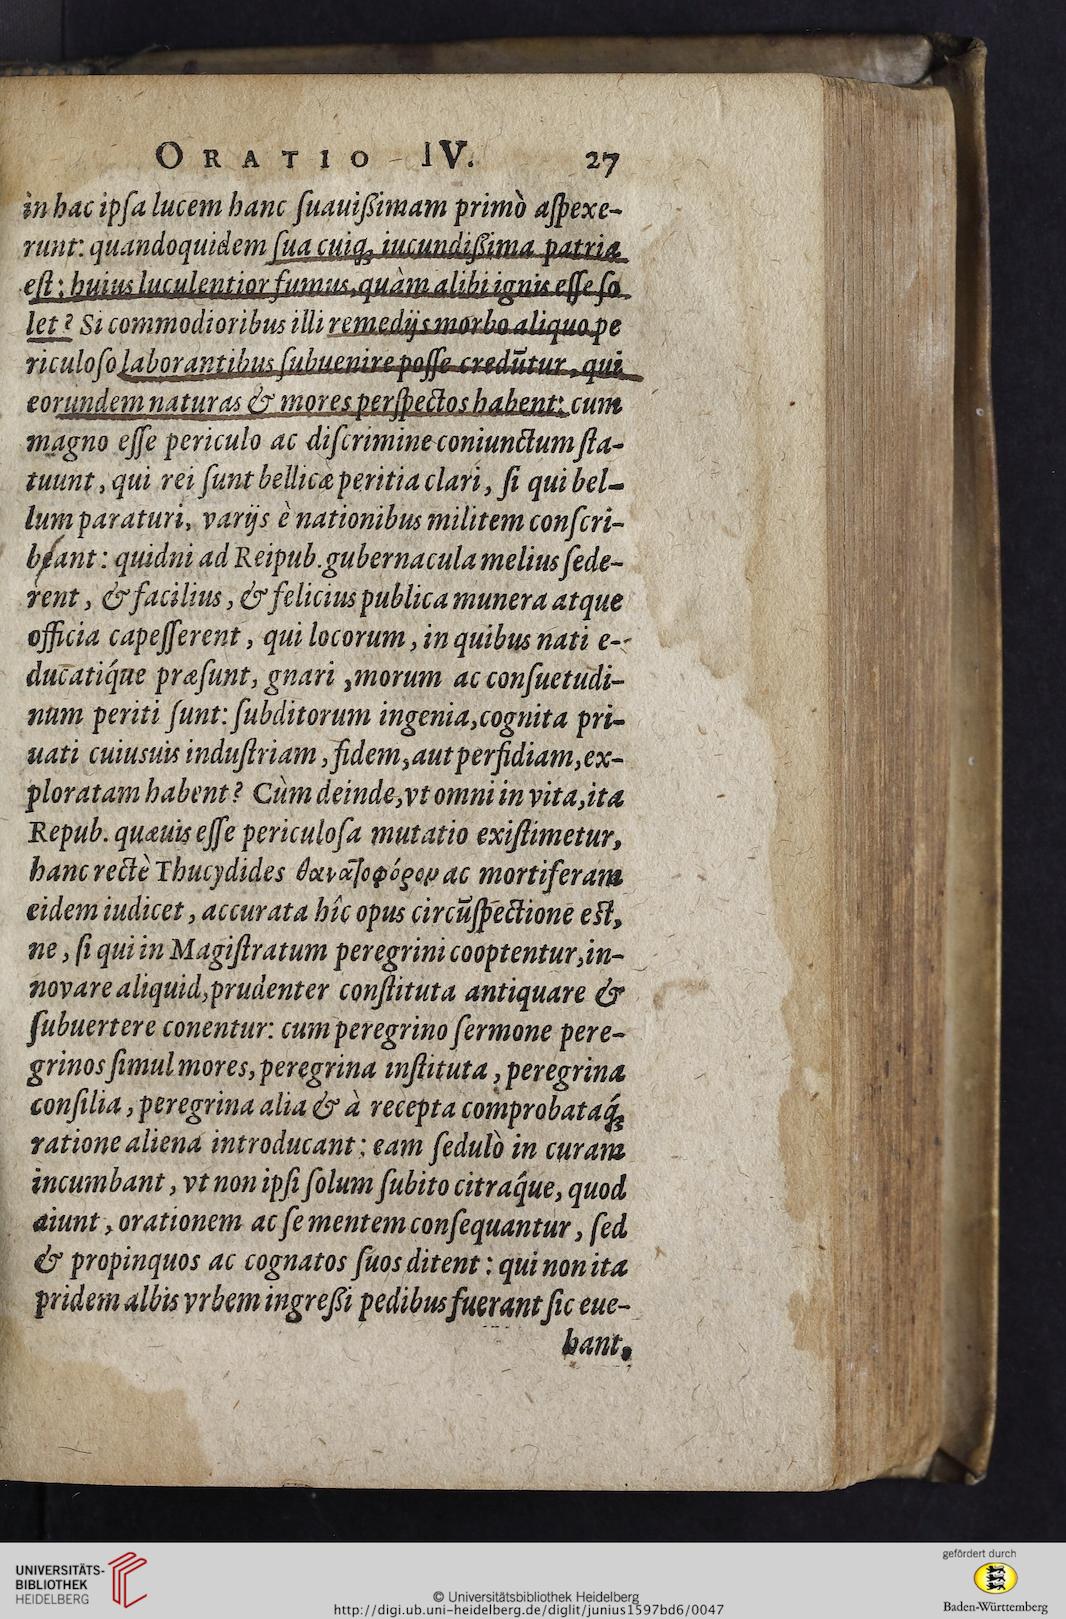 ORATIO IV. 27
in hac ipſa lucem hanc ſuauißimam primò aſpexe-
runt: quandoquidem ſua cuiq́ꝫ iucundißima patria
eſt; huius luculentior fumus, quàm alibi ignis eſſe ſo
let? Si commodioribus illi remedijs morbo aliquo pe
riculoſo laborantibus ſubuenire poſſe credūtur, qui
eorundem naturas & mores perſpectos habent: cum
magno eſſe periculo ac diſcrimine coniunctum ſta-
tuunt, qui rei ſunt bellicæ peritia clari, ſi qui bel-
lum paraturi, varijs è nationibus militem conſcri-
beant: quidni ad Reipub. gubernacula melius ſede-
rent, & facilius, & felicius publica munera atque
officia capeſſerent, qui locorum, in quibus nati e-
ducatiq́ue præſunt, gnari, morum ac conſuetudi-
num periti ſunt: ſubditorum ingenia, cognita pri-
uati cuiusuis induſtriam, fidem, aut perfidiam, ex-
ploratam habent? Cùm deinde, vt omni in vita, ita
Repub. quæuis eſſe periculoſa mutatio exiſtimetur,
hanc rectè Thucydides θανατοφόρον ac mortiferam
eidem iudicet, accurata hîc opus circūſpectione eſt,
ne, ſi qui in Magiſtratum peregrini cooptentur, in-
novare aliquid, prudenter conſtituta antiquare &
ſubuertere conentur: cum peregrino ſermone pere-
grinos ſimul mores, peregrina inſtituta, peregrina
conſilia, peregrina alia & à recepta comprobataq́ꝫ
ratione aliena introducant: eam ſedulò in curam
incumbant, vt non ipſi ſolum ſubito citraq́ue, quod
aiunt, orationem ac ſe mentem conſequantur, ſed
& propinquos ac cognatos ſuos ditent: qui non ita
pridem albis vrbem ingreßi pedibus fuerant ſic eue-
hant,
UNIVERSITÄTS-
BIBLIOTHEK
HEIDELBERG
© Universitätsbibliothek Heidelberg
http://digi.ub.uni-heidelberg.de/diglit/junius1597bd6/0047
gefördert durch
Baden-Württemberg